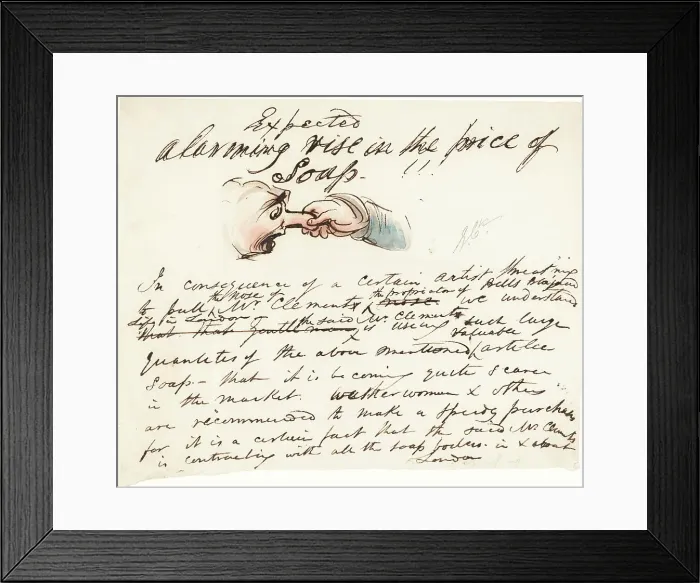 Expected
alarming rise in the price of
Soap. !!
In consequence of a certain artist threat'ning
the Nose of the proprietor of Bells
to pull Mr. Clements nose we understand
Life in London the said Mr. Clements
that that gentleman is using such large
valuable
quantities of the above mentioned article
soap - that it is becoming quite scarce
in the market. Washerwomen & others
are recommended to make a speedy purchase
for it is a certain fact that the said Mr. Clements
is contracting with all the soap boilers in & about
London